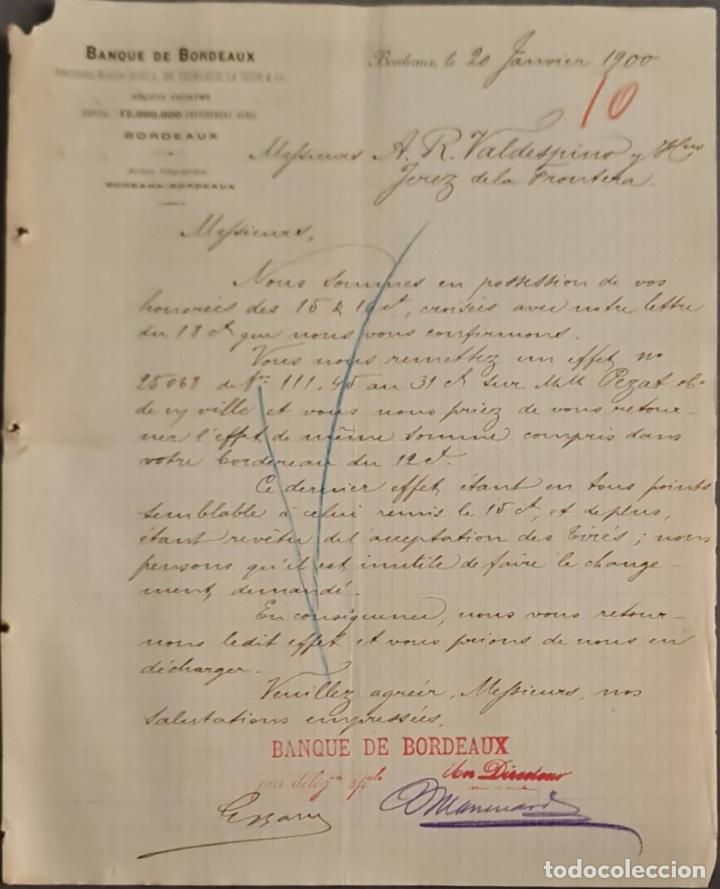 BANQUE DE BORDEAUX
SOCIÉTÉ ANONYME
CAPITAL 12.000.000 ENTIÈREMENT VERSÉ
BORDEAUX
Adresse Télégraphique
BORBANK-BORDEAUX
Bordeaux, le 20 Janvier 1900
10
Messieurs A. R. Valdespino y Hno
Jerez de la Frontera.
Messieurs,
Nous sommes en possession de vos
honorées des 15 & 16 ct, croisées avec notre lettre
du 18 ct que nous vous confirmons.
Vous nous remettez un effet, no
25068 de frs 111.45 au 31 ct sur MM Pezat & Co
de n/ ville et vous nous priez de vous retour-
ner l'effet de même somme compris dans
votre bordereau du 12 ct.
Ce dernier effet, étant en tous points
semblable à celui remis le 15 ct, et de plus,
étant revêtu de l'acceptation des tirés; nous
pensons qu'il est inutile de faire le change-
ment demandé.
En conséquence, nous vous retour-
nons ledit effet et vous prions de nous en
décharger.
Veuillez agréer, Messieurs, nos
salutations empressées.
BANQUE DE BORDEAUX
par délégon sple
Un Directeur
todocoleccion